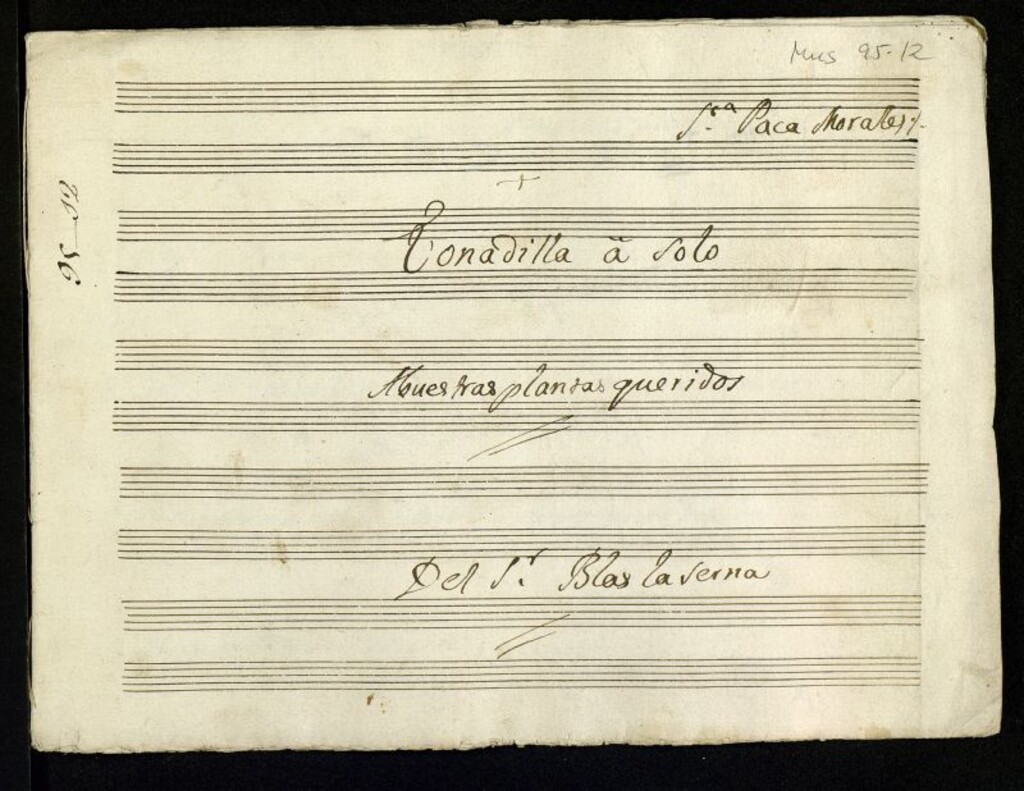 Mus 95-12
S.ra Paca Morales
95-12
+
Tonadilla à solo
Nuestras plantas queridos
Del S.r Blas la serna